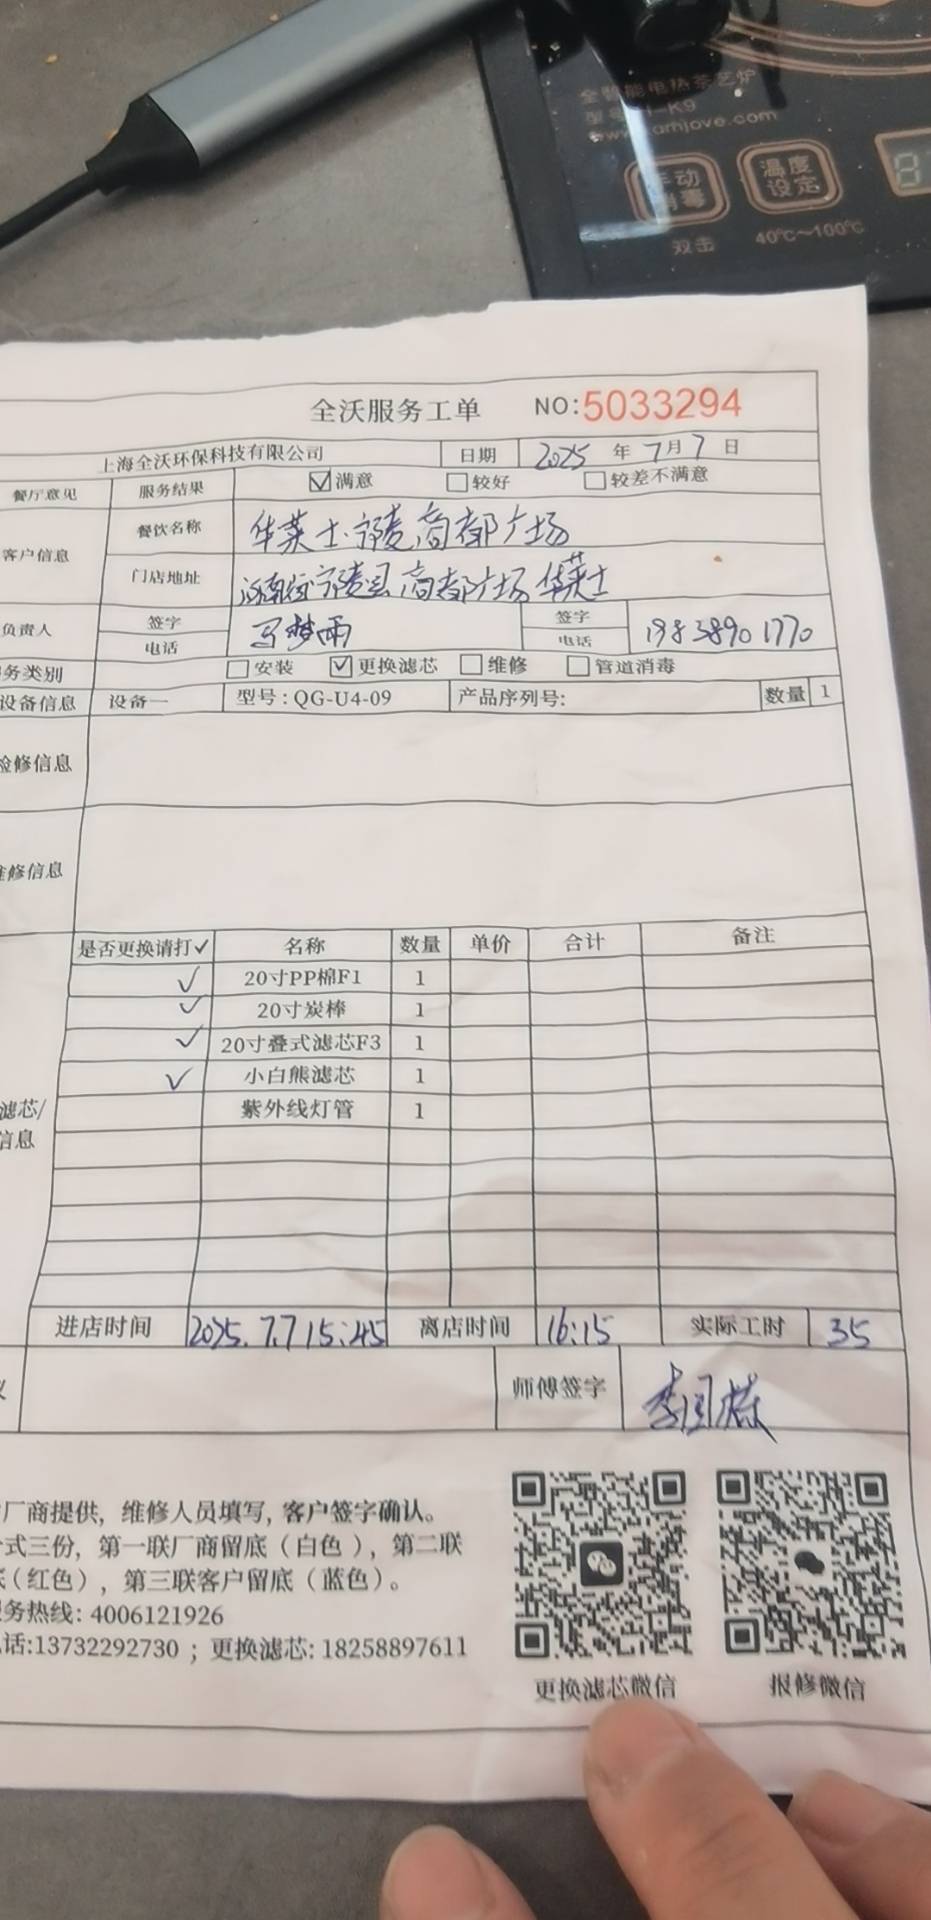 全智能电热茶艺炉
温度设定
双击
40℃~100℃
全沃服务工单 NO:5033294
上海全沃环保科技有限公司 日期 2025 年 7 月 7 日
餐厅意见 服务结果 ☑满意 ☐较好 ☐较差不满意
客户信息 餐饮名称 华莱士·宁陵商都广场
门店地址 宁陵县商都广场华莱士
负责人 签字 马梦雨 签字
电话 电话
务类别 ☐安装 ☑更换滤芯 ☐维修 ☐管道消毒
设备信息 设备一 型号:QG-U4-09 产品序列号: 数量 1
检修信息
维修信息
是否更换请打✓ 名称 数量 单价 合计 备注
✓ 20寸PP棉F1 1
✓ 20寸炭棒 1
✓ 20寸叠式滤芯F3 1
✓ 小白熊滤芯 1
紫外线灯管 1
滤芯/
信息
进店时间 2025.7.7 15:45 离店时间 16:15 实际工时 35
议 师傅签字
厂商提供, 维修人员填写, 客户签字确认。
式三份, 第一联厂商留底(白色), 第二联
底(红色), 第三联客户留底(蓝色)。
服务热线: 4006121926
电话:13732292730 ; 更换滤芯: 18258897611
更换滤芯微信 报修微信